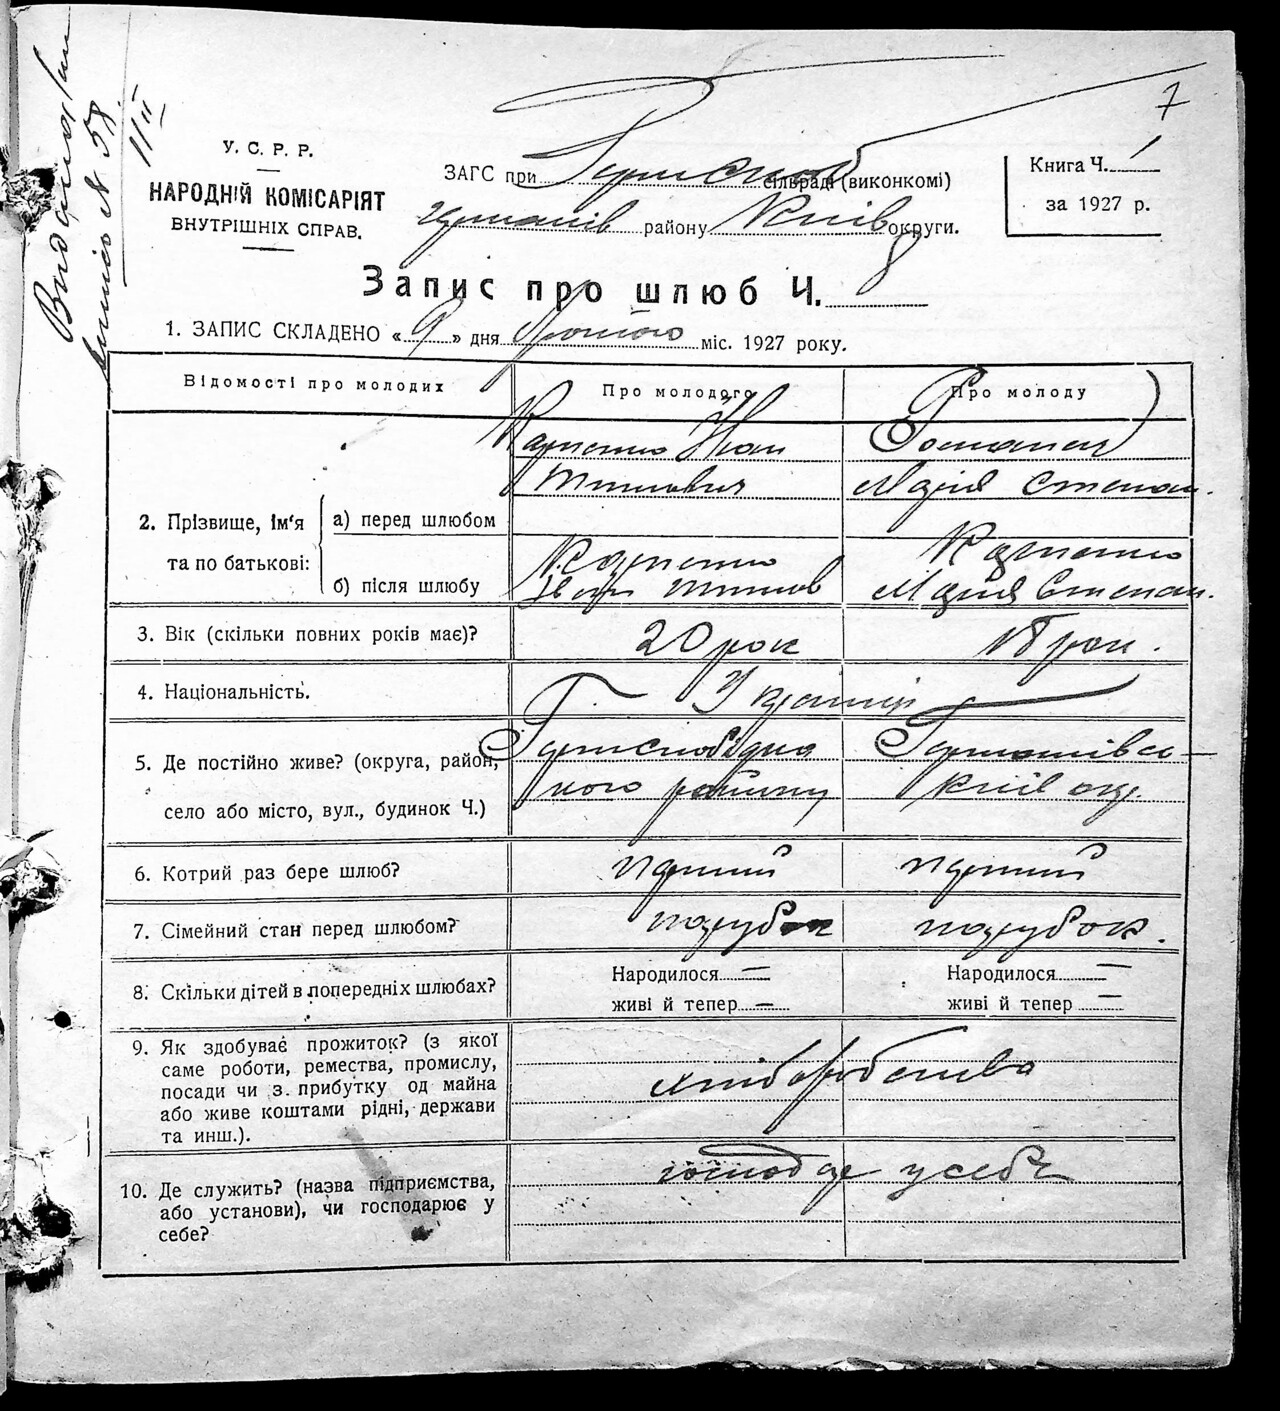 7
У. С. Р. Р.
НАРОДНІЙ КОМІСАРІЯТ
ВНУТРІШНІХ СПРАВ.
ЗАГС при сільраді (виконкомі)
району Київ округи.
Книга Ч. 1
за 1927 р.
Запис про шлюб Ч. 8
1. ЗАПИС СКЛАДЕНО « 9 » дня лютого міс. 1927 року.
Відомості про молодих
Про молодого
Про молоду
2. Прізвище, ім'я та по батькові:
а) перед шлюбом
Іван
Марія Степан.
б) після шлюбу
Марія Степан.
3. Вік (скільки повних років має)?
20 рок
18 рок.
4. Національність.
Українці
5. Де постійно живе? (округа, район,
село або місто, вул., будинок Ч.)
кого району
Київ окр.
6. Котрий раз бере шлюб?
перший
перший
7. Сімейний стан перед шлюбом?
парубок
парубок.
8. Скільки дітей в попередніх шлюбах?
Народилося —
Народилося —
живі й тепер —
живі й тепер —
9. Як здобуває прожиток? (з якої
саме роботи, ремества, промислу,
посади чи з прибутку од майна
або живе коштами рідні, держави
та инш.).
хліборобство
10. Де служить? (назва підприємства,
або установи), чи господарює у
себе?
господар у себе